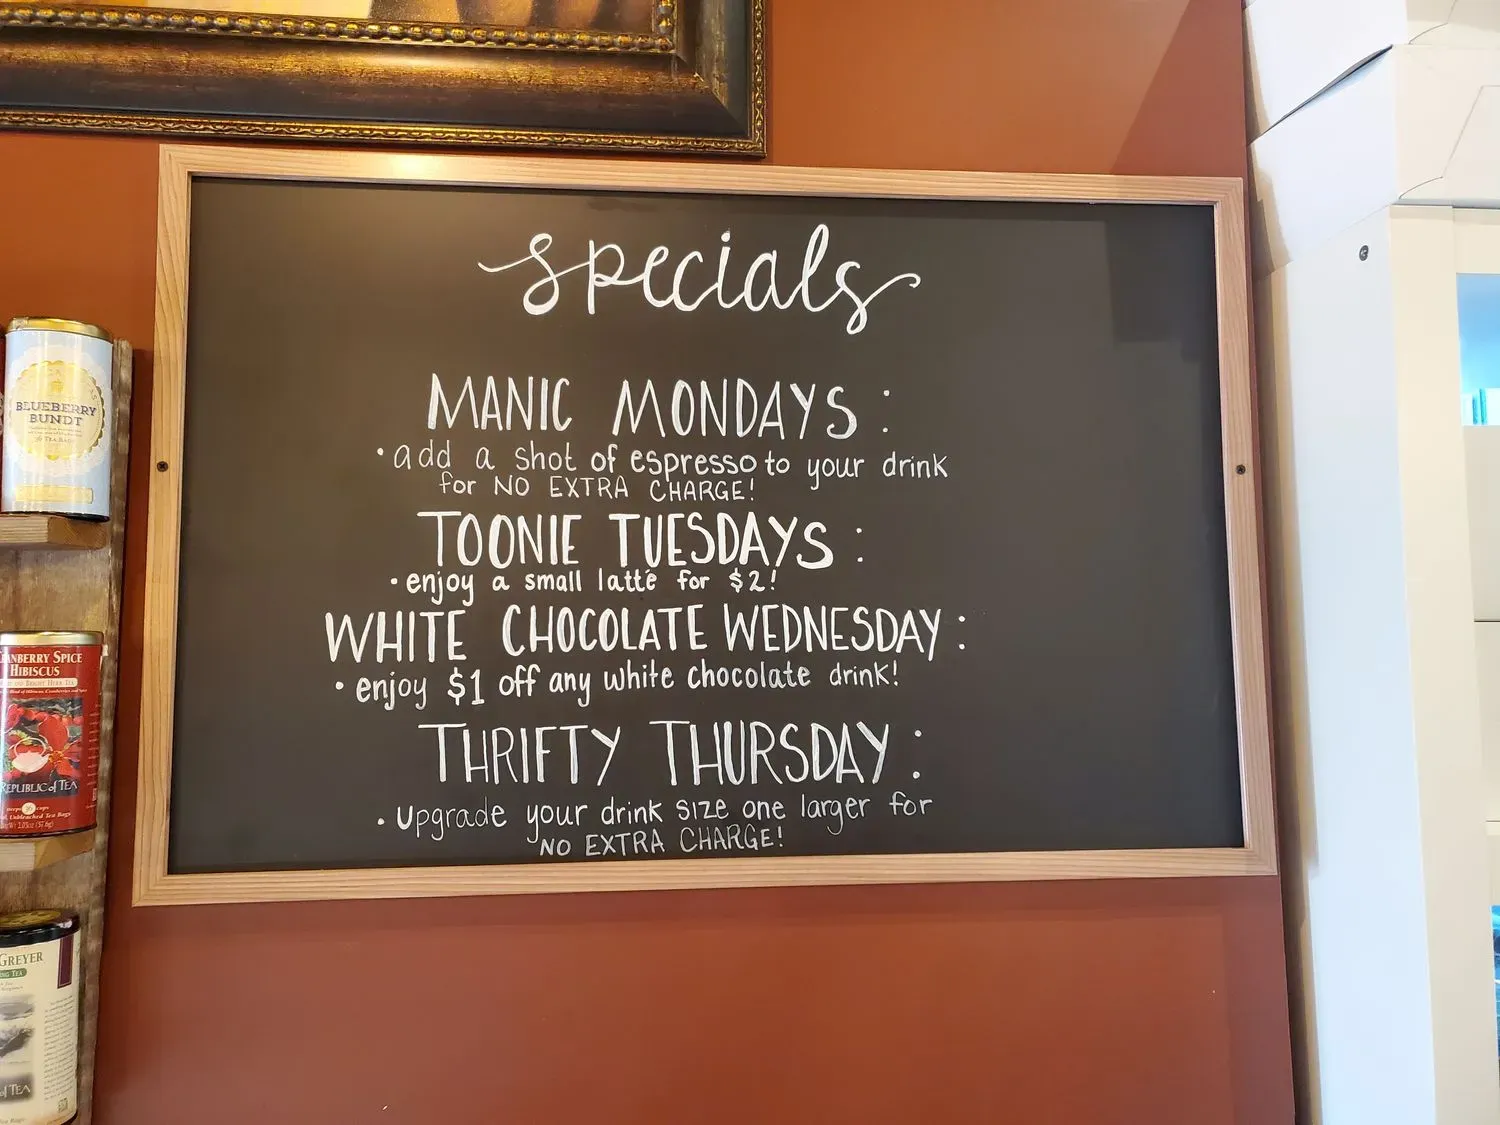 specials
MANIC MONDAYS:
• add a shot of espresso to your drink
for NO EXTRA CHARGE!
TOONIE TUESDAYS:
• enjoy a small latté for $2!
WHITE CHOCOLATE WEDNESDAY:
• enjoy $1 off any white chocolate drink!
THRIFTY THURSDAY:
• upgrade your drink size one larger for
NO EXTRA CHARGE!
BLUEBERRY
BUNDT
36 TEA BAGS
CRANBERRY SPICE
HIBISCUS
REPUBLIC of TEA
GREYER
of TEA